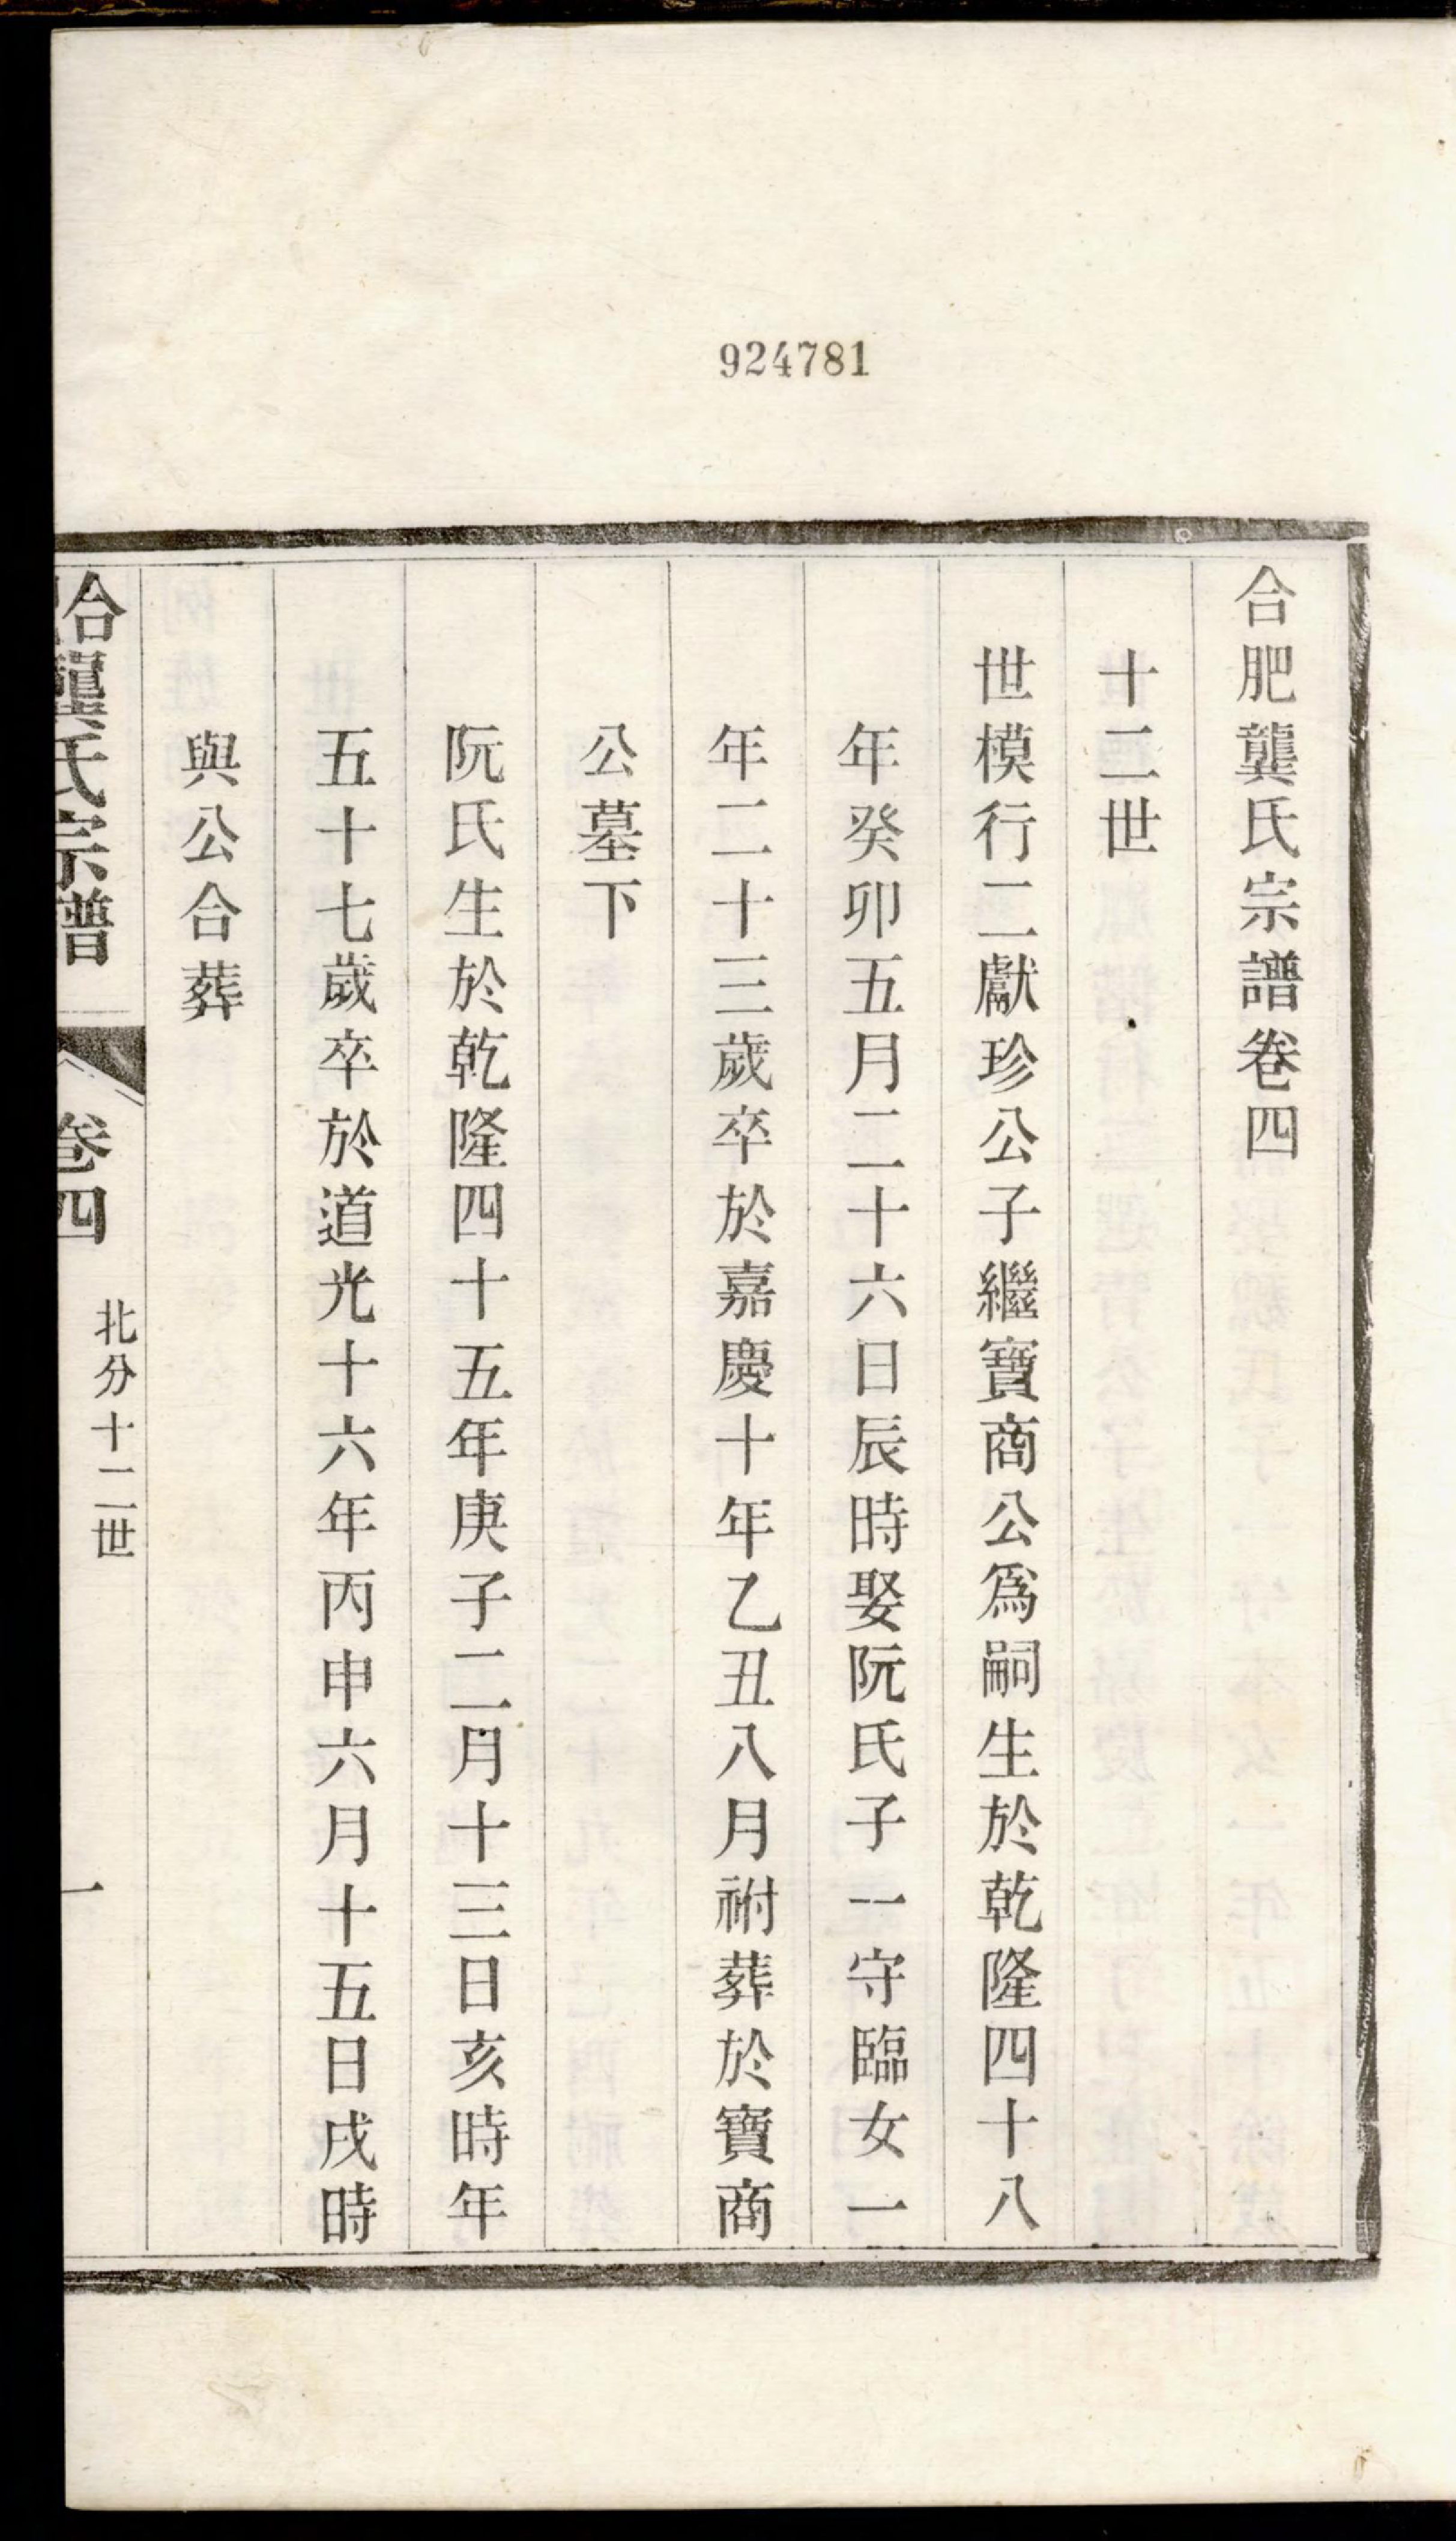 924781
合肥龔氏宗譜卷四
十二世
世模行二獻珍公子繼寶商公爲嗣生於乾隆四十八
年癸卯五月二十六日辰時娶阮氏子一守臨女一
年二十三歲卒於嘉慶十年乙丑八月祔葬於寶商
公墓下
阮氏生於乾隆四十五年庚子二月十三日亥時年
五十七歲卒於道光十六年丙申六月十五日戌時
與公合葬
合肥龔氏宗譜
卷四
北分十二世
一